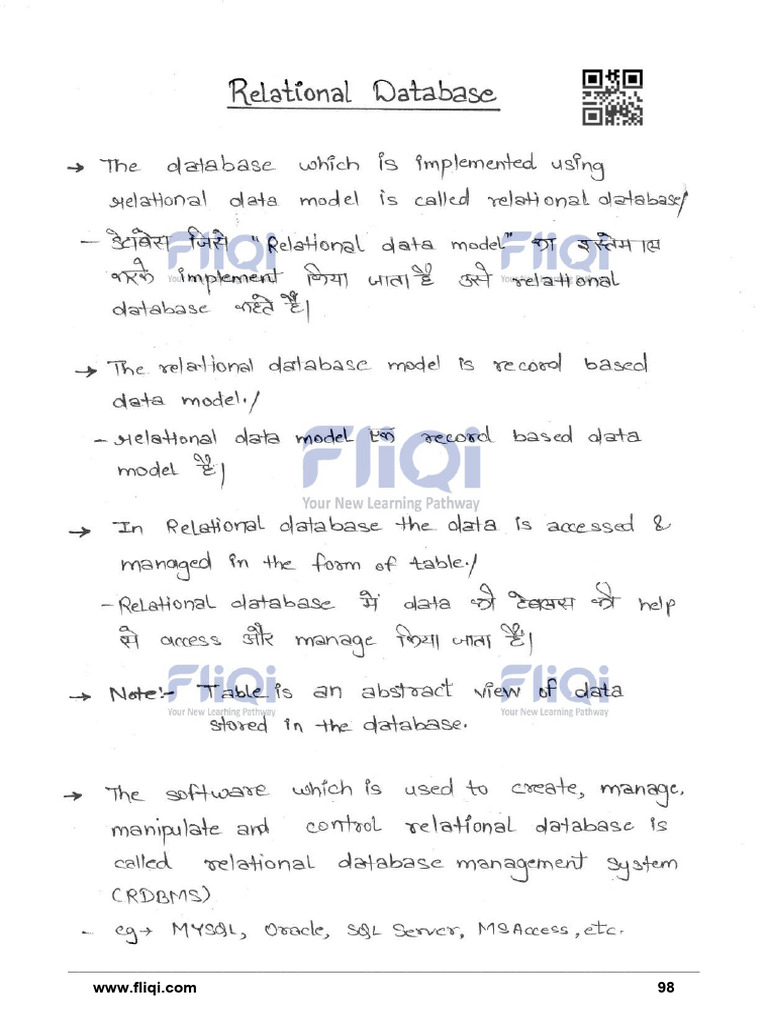 Relational Database
→ The database which is implemented using
relational data model is called relational database/
- डेटाबेस जिसे "Relational data model" का इस्तेमाल
करके implement किया जाता है उसे relational
database कहते है।
→ The relational database model is record based
data model./
- relational data model एक record based data
model है।
FliQi
Your New Learning Pathway
→ In Relational database the data is accessed &
managed in the form of table./
- Relational database में data को टेबलस की help
से access और manage किया जाता है।
FliQi
FliQi
→ Note:- Table is an abstract view of data
Your New Learning Pathway
Your New Learning Pathway
stored in the database.
→ The software which is used to create, manage,
manipulate and control relational database is
called relational database management system
(RDBMS)
- eg → MYSQL, Oracle, SQL Server, MS Access, etc.
www.fliqi.com 98